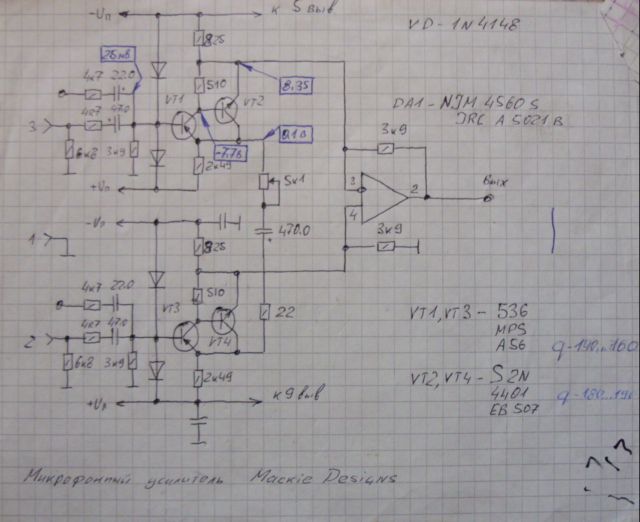 -Uп
к 5 выв
VD - 1N4148
825
26 мв
4к7 22.0
510
8.35
VT1
VT2
DA1 - NJM 4560 S
JRC A 5021 B
4к7 47.0
3
3к9
0,1 в
-7,7в
6к8
3к9
2к49
5к1
+Uп
3
2
Вых
4
-Uп
1
825
470.0
3к9
4к7 22.0
510
VT3
22
VT1, VT3 - 536
MPS
A56
4к7 47.0
VT4
2
6к8
3к9
2к49
VT2, VT4 - S2N
4401
EB 507
+Uп
к 9 выв
Микрофонный усилитель Mackie Designs